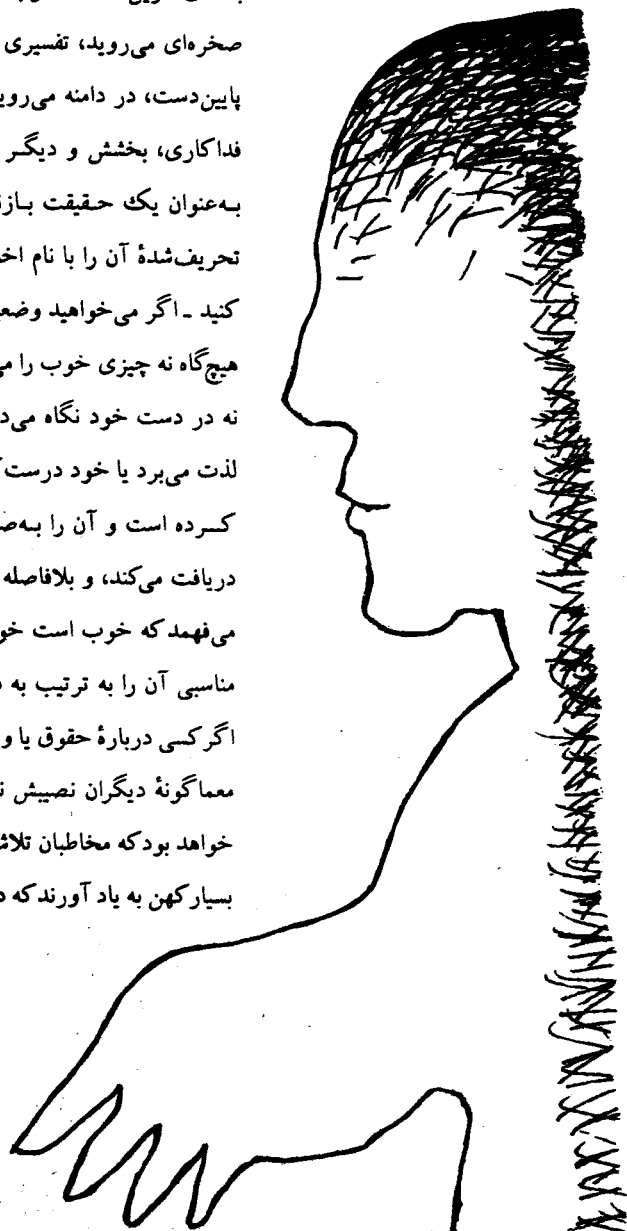 صخره‌ای می‌روید، تفسیری
پایین‌دست، در دامنه می‌روی
فداکاری، بخشش و دیگر
به‌عنوان یک حقیقت باز
تحریف‌شدهٔ آن را با نام اخ
کنید ـ اگر می‌خواهید وضع
هیچ‌گاه نه چیزی خوب را م
نه در دست خود نگاه می‌د
لذت می‌برد یا خود درست
کرده است و آن را به‌ص
دریافت می‌کند، و بلافاصله
می‌فهمد که خوب است خو
مناسبی آن را به ترتیب به
اگر کسی دربارهٔ حقوق یا و
معماگونهٔ دیگران نصیبش ن
خواهد بود که مخاطبان تلاش
بسیار کهن به یاد آورند که د